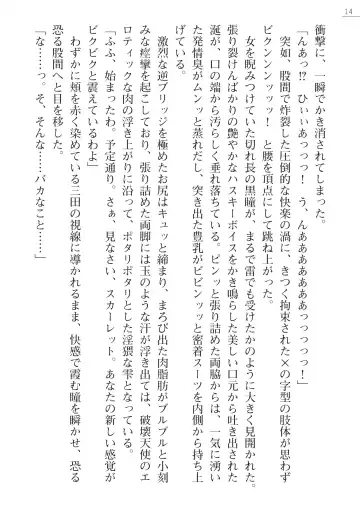 14
衝撃に、一瞬でかき消されてしまった。
「んあっ♡　ひぃぃあっっっ！　う、んああああああぁっっっっ！」
突如、股間で炸裂した圧倒的な快楽の渦に、きつく拘束された×の字型の肢体が思わず
ビクンンンッッッ！　と腰を頂点にして跳ね上がった。
女を睨みつけていた切れ長の黒瞳が、まるで雷でも受けたかのように大きく見開かれ、
張り裂けんばかりの艶やかなハスキーボイスをかき鳴らした美しい口元から吐き出された
涎が、口の端からだらしなく垂れ落ちている。ピンと張り詰めた両脇からは、一気に湧い
た発情臭がムンッと蒸れだし、突き出た豊乳がビビンッッと密着スーツを内側から持ち上
げている。
激烈な逆ブリッジを極めたお尻はキュッと締まり、まろび出た肉脂肪がブルブルと小刻
みな痙攣を起こしており、張り詰めた両脚には玉のような汗が浮き出ては、破壊天使のエ
ロティックな肉の浮き上がりに沿って、ポタリポタリとした淫猥な雫を流している。
「ふふ、始まったわ。予定通り。さぁ、見なさい、スカーレット。あなたの新しい感覚が
ビクビクと震えているわよ」
わずかに頬を赤く染めている三田の視線に導かれるまま、快感で霞む瞳を瞬かせ、恐る
恐る股間へと目を移した。
「な……っ。そ、そんな……バカなこと……」